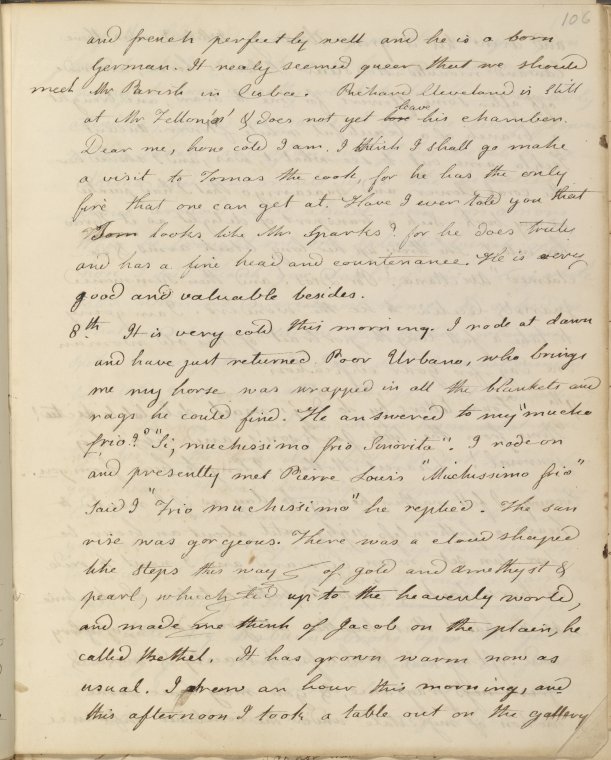 106
and french perfectly well and he is a born
German. It realy seemed queer that we should
meet Mr Parish in Cuba. Richard Cleveland is still
at Mr Fellonia's & does not yet leave his chamber.
Dear me, how cold I am. I think I shall go make
a visit to Tomas the cook, for he has the only
fire that one can get at. Have I ever told you that
Tom looks like Mr Sparks? for he does truly
and has a fine head and countenance. He is very
good and valuable besides.
8th. It is very cold this morning. I rode at dawn
and have just returned. Poor Urbano, who brings
me my horse was wrapped in all the blankets and
rags he could find. He answered to my "mucho
frio?" "Si, muchissimo frio Senorita". I rode on
and presently met Pierre Louis "Muchissimo frio"
said I "Frio muchissimo" he replied. The sun
rise was gorgeous. There was a cloud shaped
like steps this way of gold and amethyst &
pearl, which led up to the heavenly world,
and made me think of Jacob on the plain, he
called Bethel. It has grown warm now as
usual. I drew an hour this morning, and
this afternoon I took a table out on the gallery